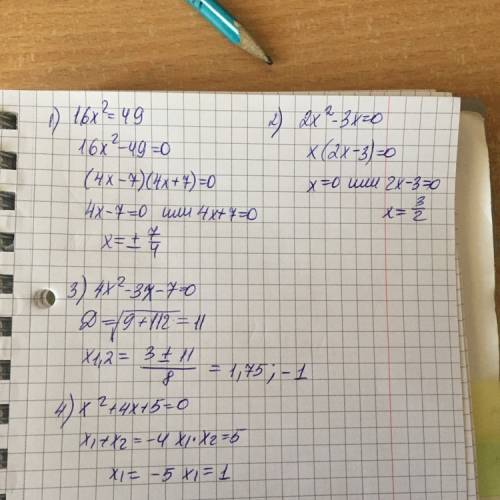 1) 16x²=49
16x²-49=0
(4x-7)(4x+7)=0
4x-7=0 или 4x+7=0
x=± 7/4
2) 2x²-3x=0
x(2x-3)=0
x=0 или 2x-3=0
x= 3/2
3) 4x²-3x-7=0
D=√9+112=11
x1,2= 3±11/8 =1,75;-1
4) x²+4x+5=0
x1+x2=-4 x1·x2=5
x1=-5 x1=1